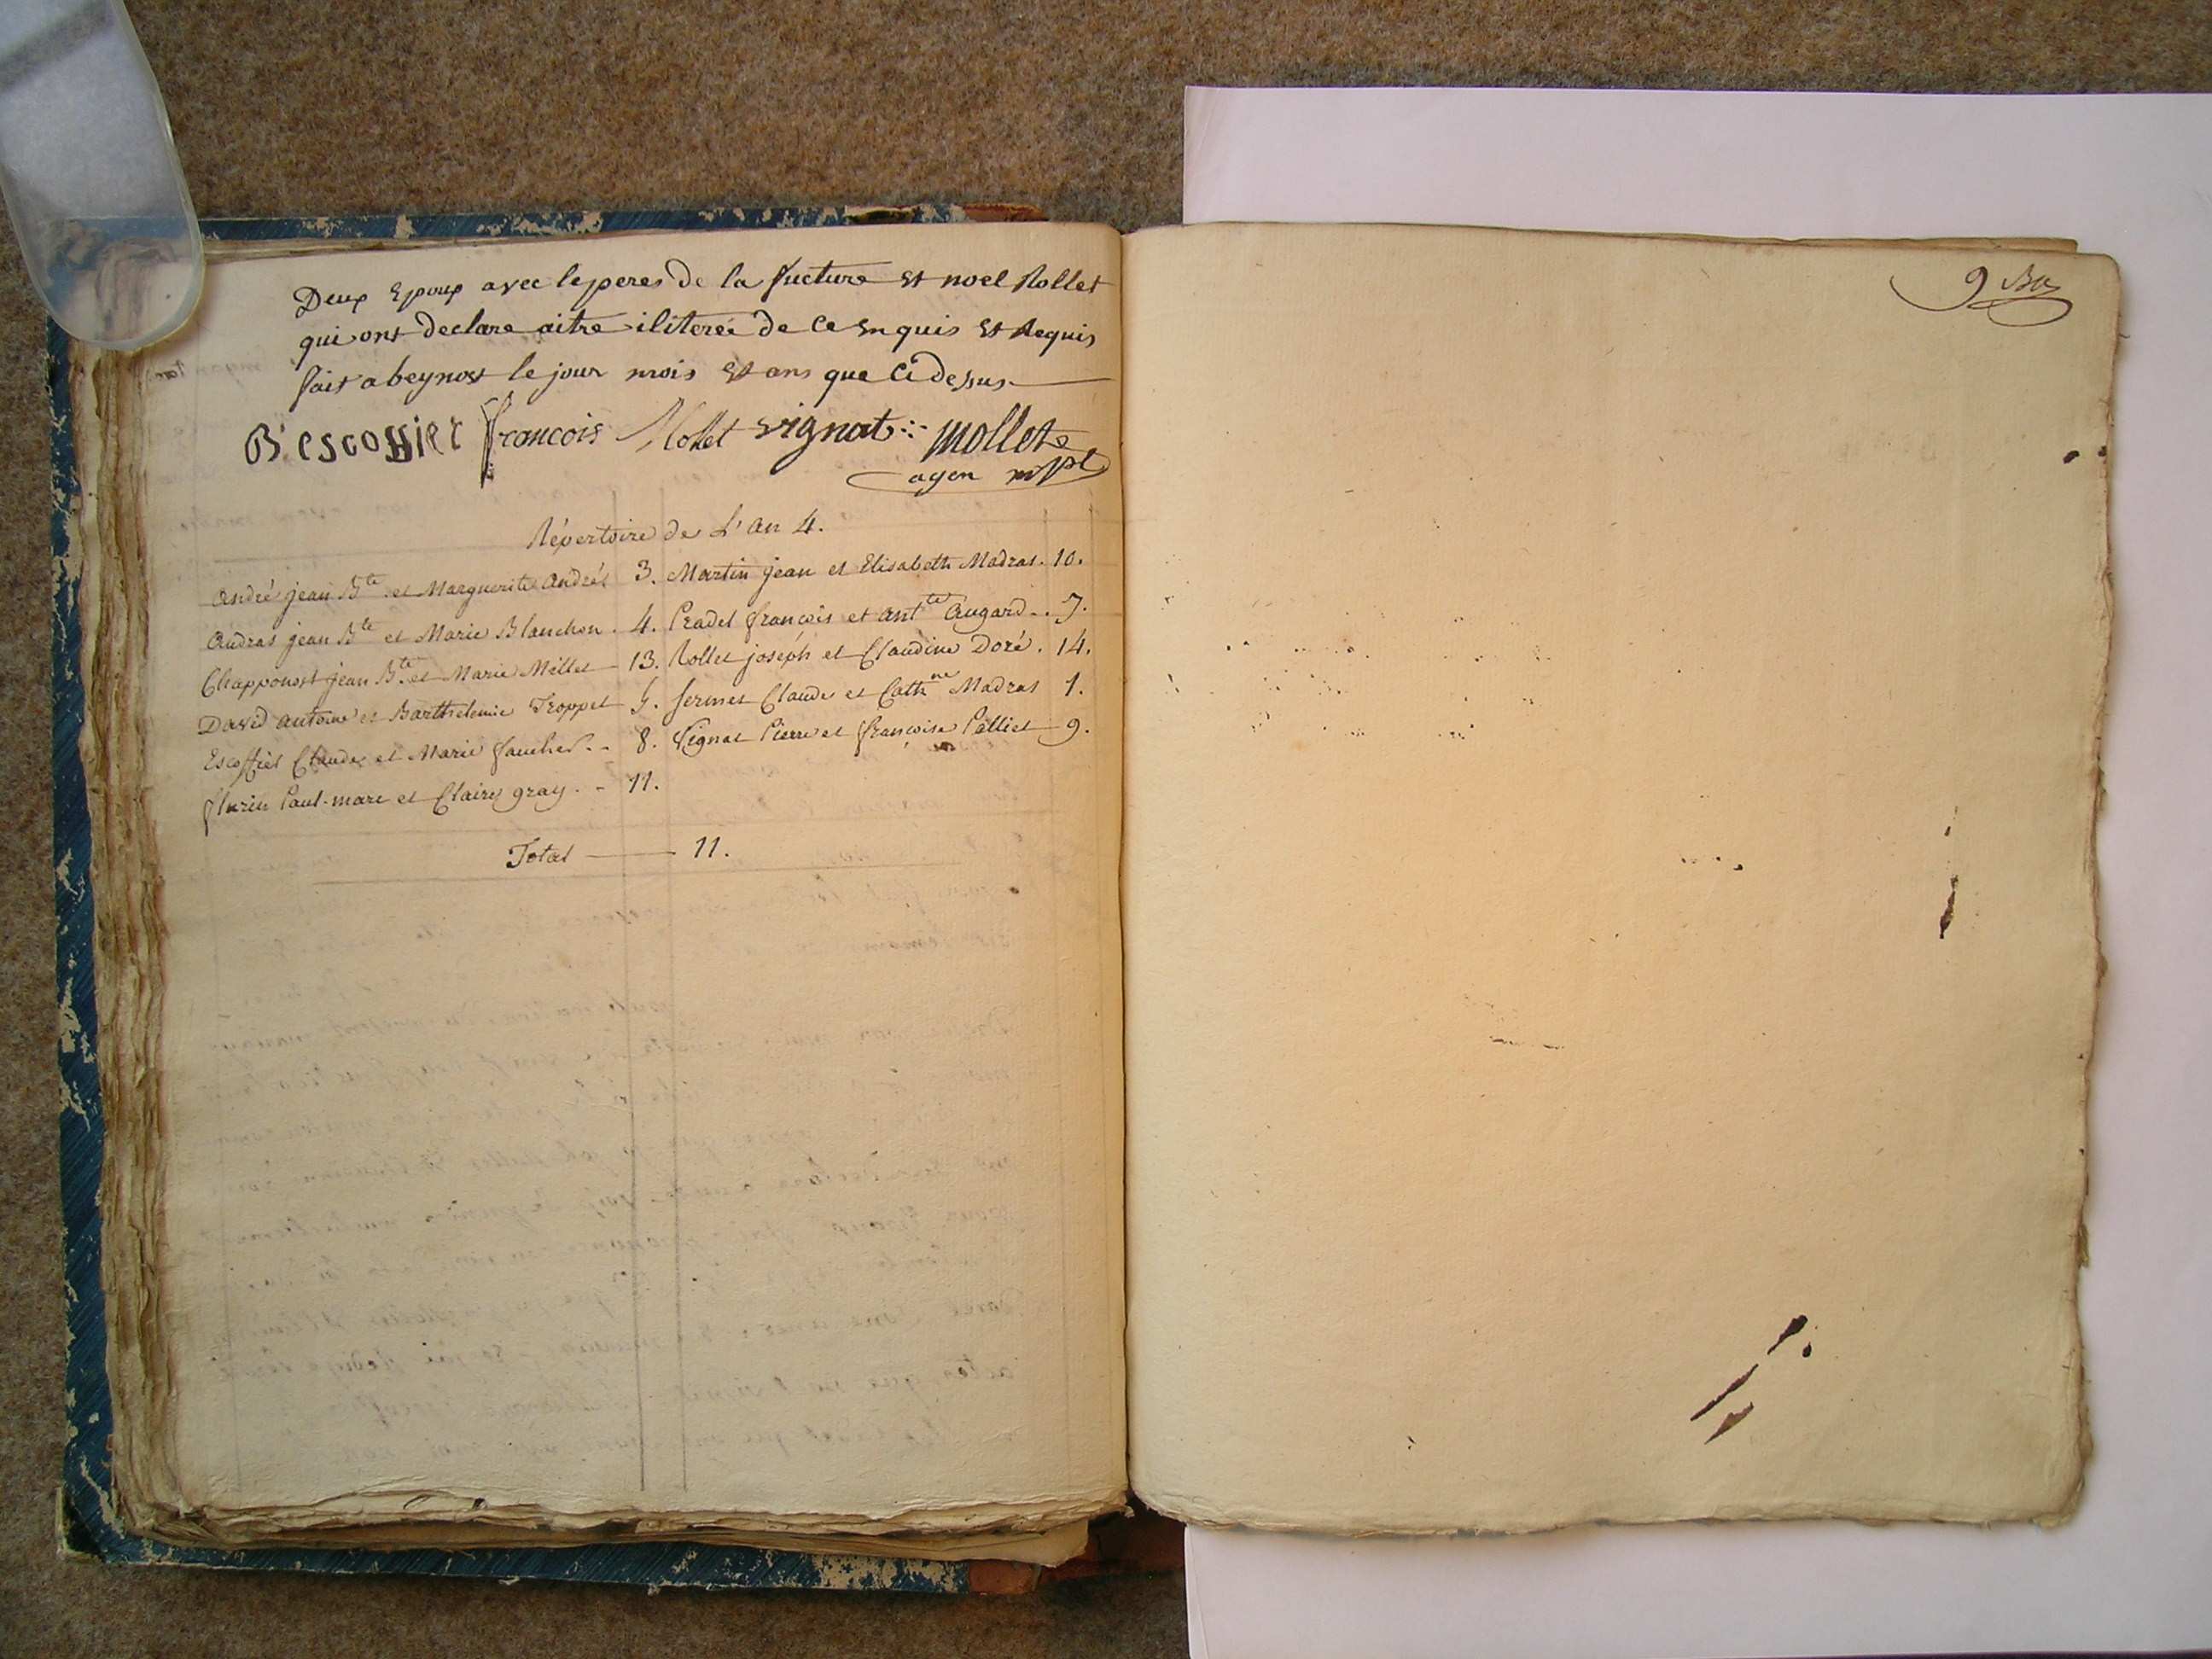 Deux Epoux avec le peres de la fucture Et noel Rollet
qui ont declare aitre iliterée de ce Enquis Et Requis
fait a beynost le jour mois Et ans que Ci dessus
B escoffier francois Mollet vignat mollet
agen mpl
Répertoire de L'an 4.
André jean Bte et Marguerite André 3.
Audras jean Bte et Marie Blanchon . 4.
Chapponost jean Bte et Marie Millet - 13.
David antoine et Barthelemie Troppet 5.
Escoffier Claude et Marie faucher . - 8.
flurin Paul-marc et Claire gray . - 11.
Martin jean et Elisabeth Madras . 10.
Pradel françois et antte Augard - . 7.
Rollet joseph et Claudine Doré . 14.
fermet Claude et Cathne Madras 1.
Vignat Pierre et françoise Palliet 9.
Total 11.
9